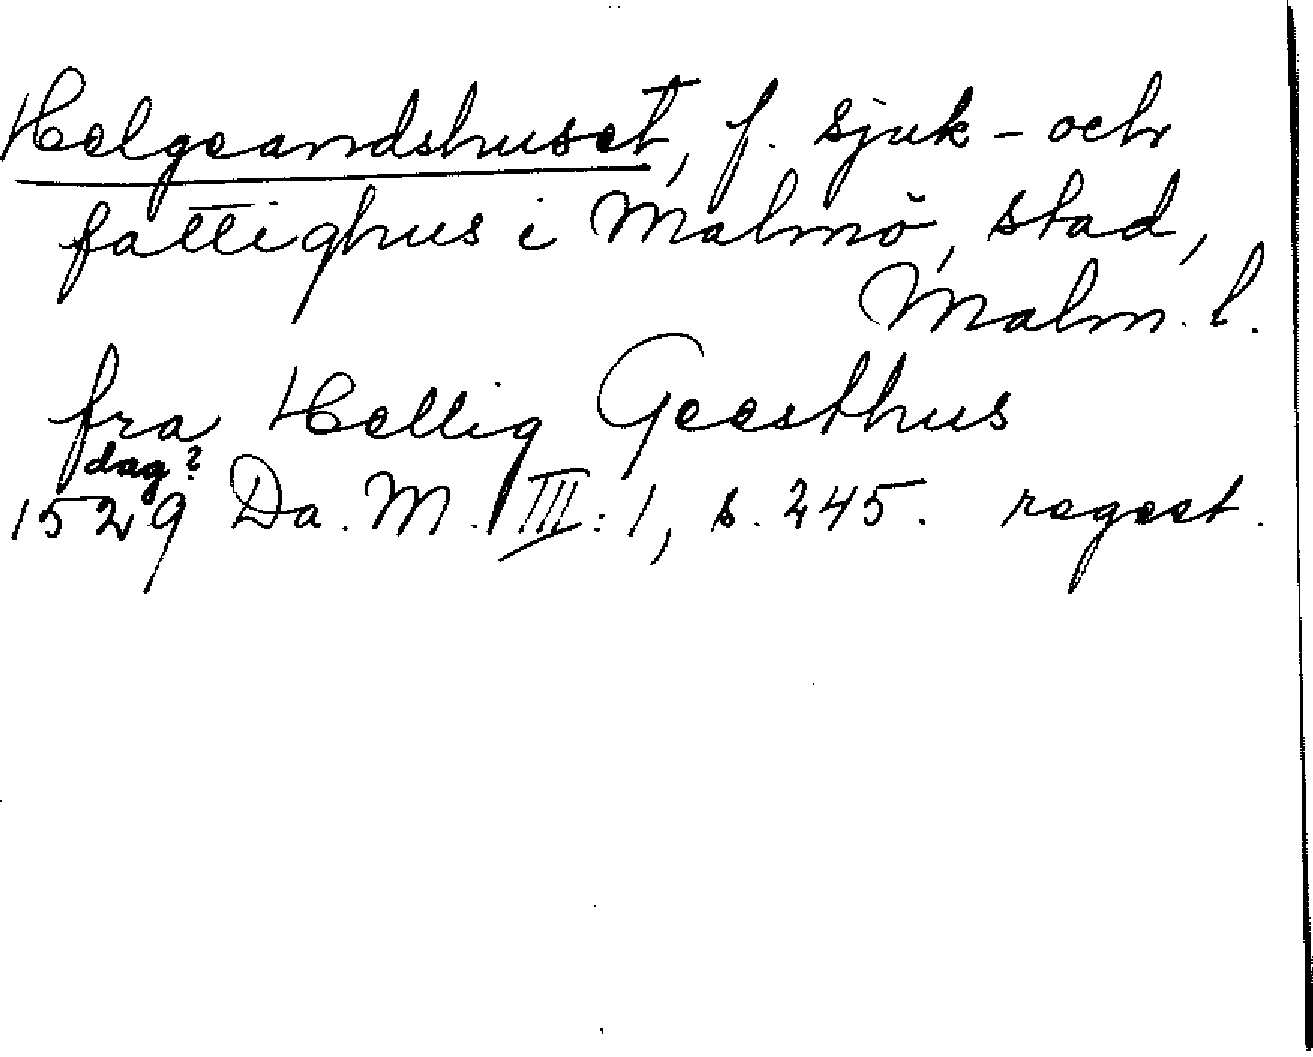 Helgeandshuset, f. sjuk- och
fattighus i Malmö, stad,
Malm. l.
fra Hellig Geesthus
dag?
1529 Da. M. III: 1, s. 245. regest.